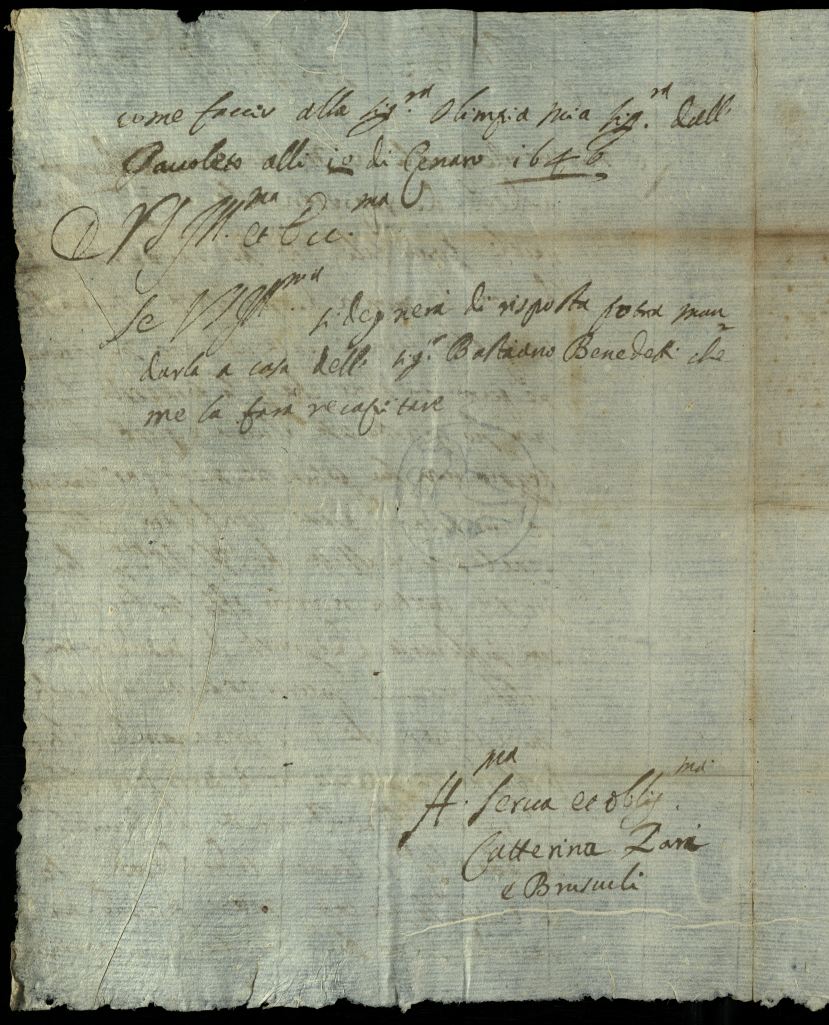 come faccio alla sig.ra Olimpia mia sig.ra dall
Pauoleto alli 10 di Genaro 1646
D VS Ill.ma et Ecc.ma
se VS Ill.ma si degnerà di risposta potrà man
darla a casa dell sig.r Bastiano Benedetti che
me la farà recapitare
serua et oblig.ma
Catterina Zani
e Brusueli